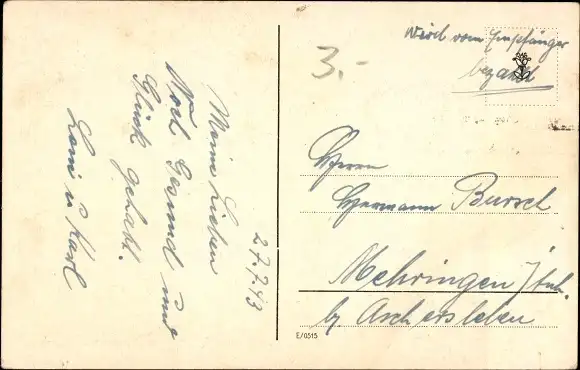 27.7.43
Meine Lieben
Noch Gesund und
Glück gehabt.
Loni u Karl
3.-
Wird vom Empfänger
bezahlt
Herrn
Hermann Bursch
Mehringen / Anh.
by Aschersleben
E/0515